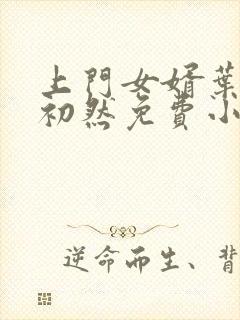 上門女婿葉
初然免費小
逆命而生、背